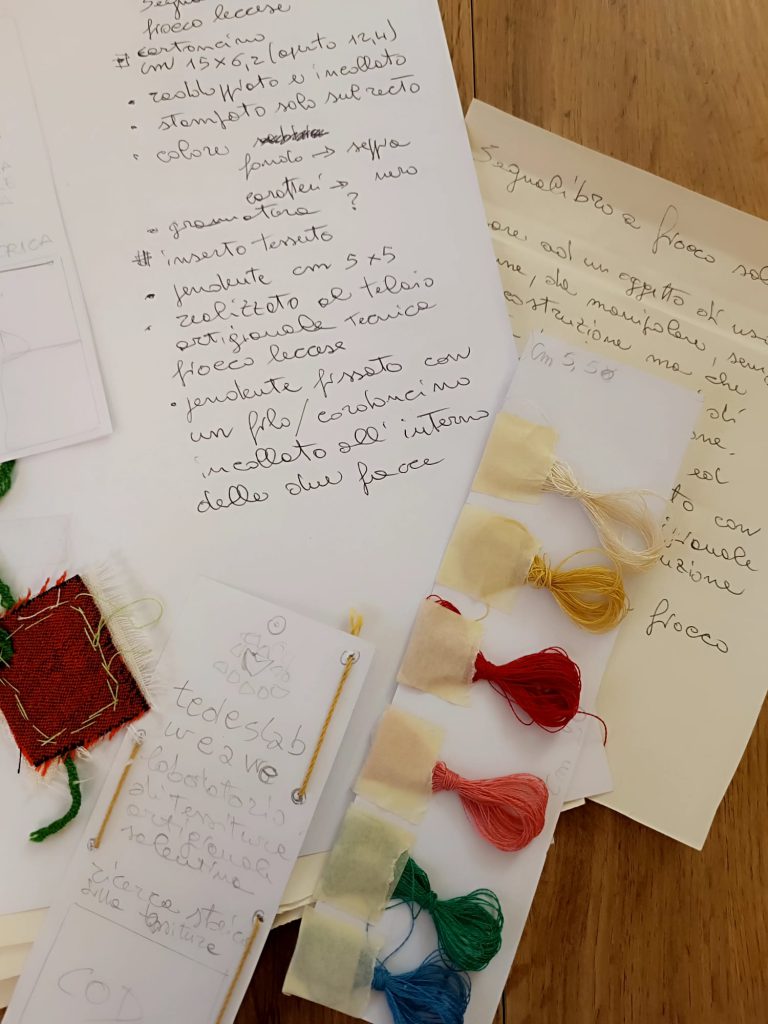 fiocco leccese
# cartoncino
cm 15x6,2 (aperto 12,4)
• raddoppiato e incollato
• stampato solo sul recto
• colore
fondo → seppia
caratteri → nero
• grammatura ?
# inserto tessuto
• pendente cm 5x5
• realizzato al telaio
artigianale tecnica
fiocco leccese
• pendente fissato con
un filo/cordoncino
incollato all'interno
delle due facce
Segnalibro a fiocco
ad un oggetto di
da manipolare,
ma che
di
ed
con
fiocco
cm 5,5
tedeslab
weave
laboratorio
di tessitura
artigianale
salentina
ricerca
sulla tessitura
COD